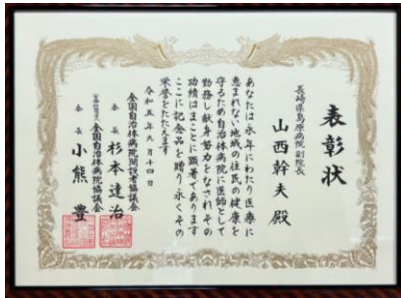 表彰状
長崎県島原病院副院長
山西幹夫 殿
あなたは永年にわたり医療に
恵まれない地域の住民の健康を
守るため自治体病院に医師として
勤務し献身努力をなされその
功績はまことに顕著であります
ここに記念品を贈り永くその
栄誉をたたえます
令和五年九月十四日
全国自治体病院開設者協議会
会長 杉本達治
公益社団法人 全国自治体病院協議会
会長 小熊豊